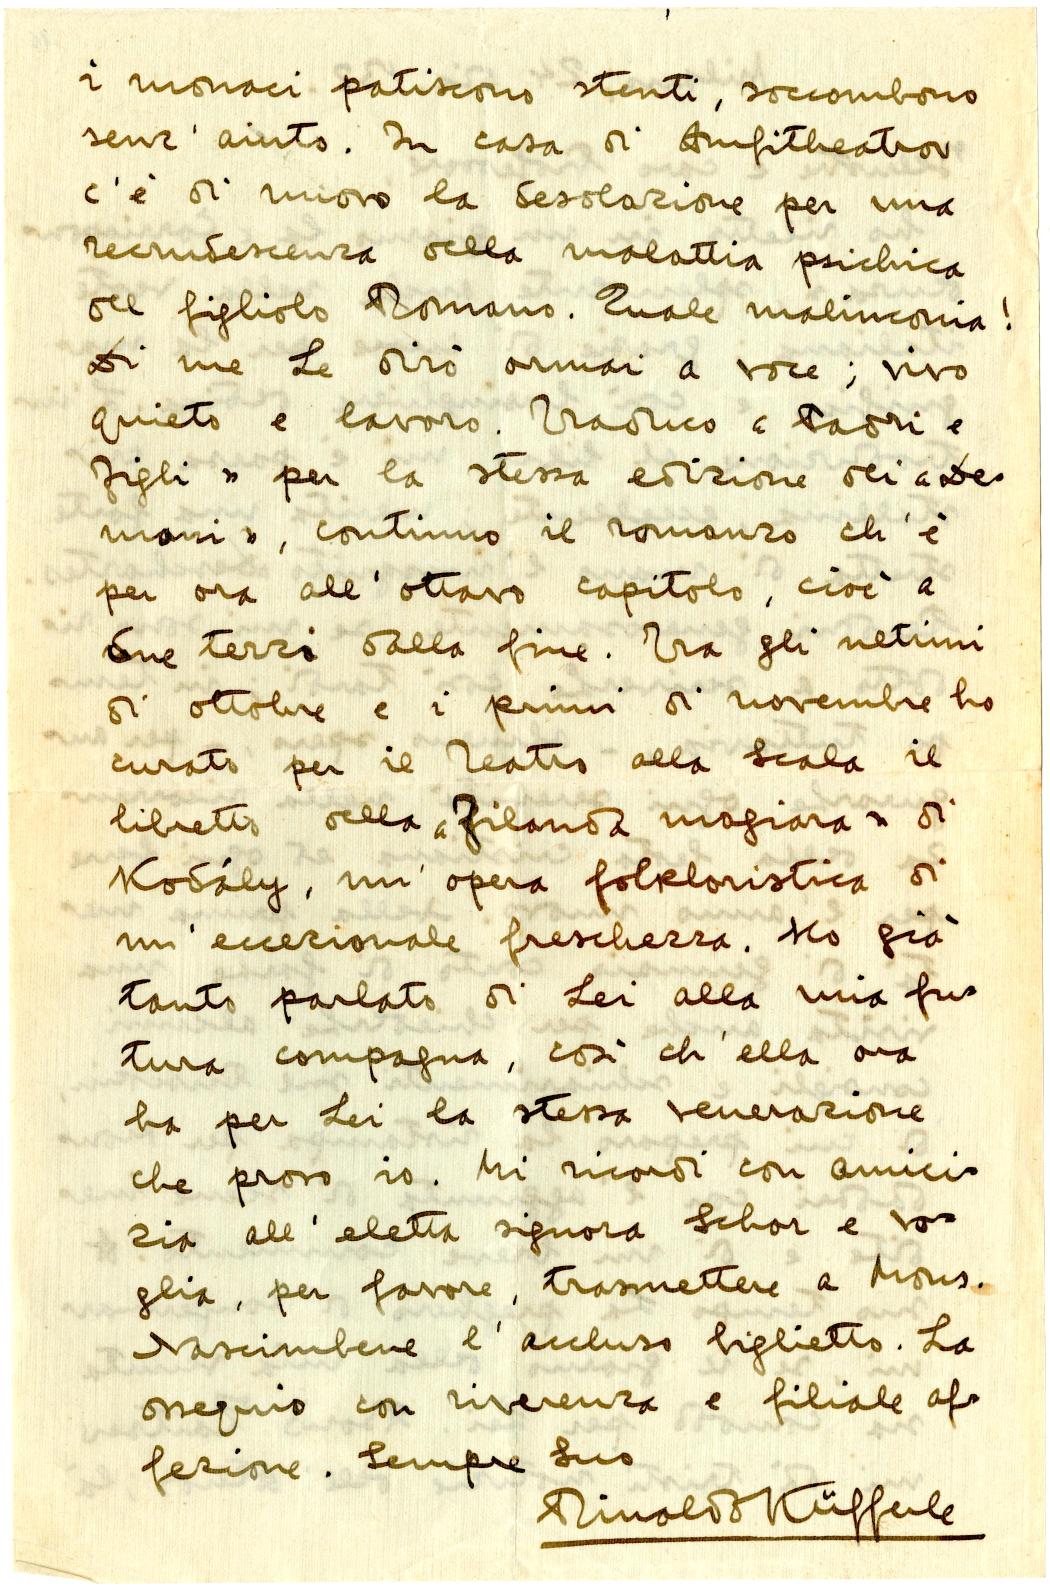 i monaci patiscono stenti, soccombono
senz'aiuto. In casa di Amfitheatrov
c'è di nuovo la desolazione per una
recrudescenza della malattia psichica
del figliolo Romano. Quale malinconia!
Di me Le dirò ormai a voce; vivo
quieto e lavoro. Traduco « Padri e
Figli » per la stessa edizione dei « De-
moni », continuo il romanzo ch'è
per ora all'ottavo capitolo, cioè a
due terzi dalla fine. Tra gli ultimi
di ottobre e i primi di novembre ho
curato per il Teatro alla Scala il
libretto della « Filanda magiara » di
Kodály, un'opera folkloristica di
un'eccezionale freschezza. Ho già
tanto parlato di Lei alla mia fu-
tura compagna, così ch'ella ora
ha per Lei la stessa venerazione
che provo io. Mi ricordi con amici-
zia all'eletta signora Schor e vo-
glia, per favore, trasmettere a Mons.
Nascimbene l'accluso biglietto. La
ossequio con riverenza e filiale af-
fezione. Sempre Suo
Rinaldo Küfferle